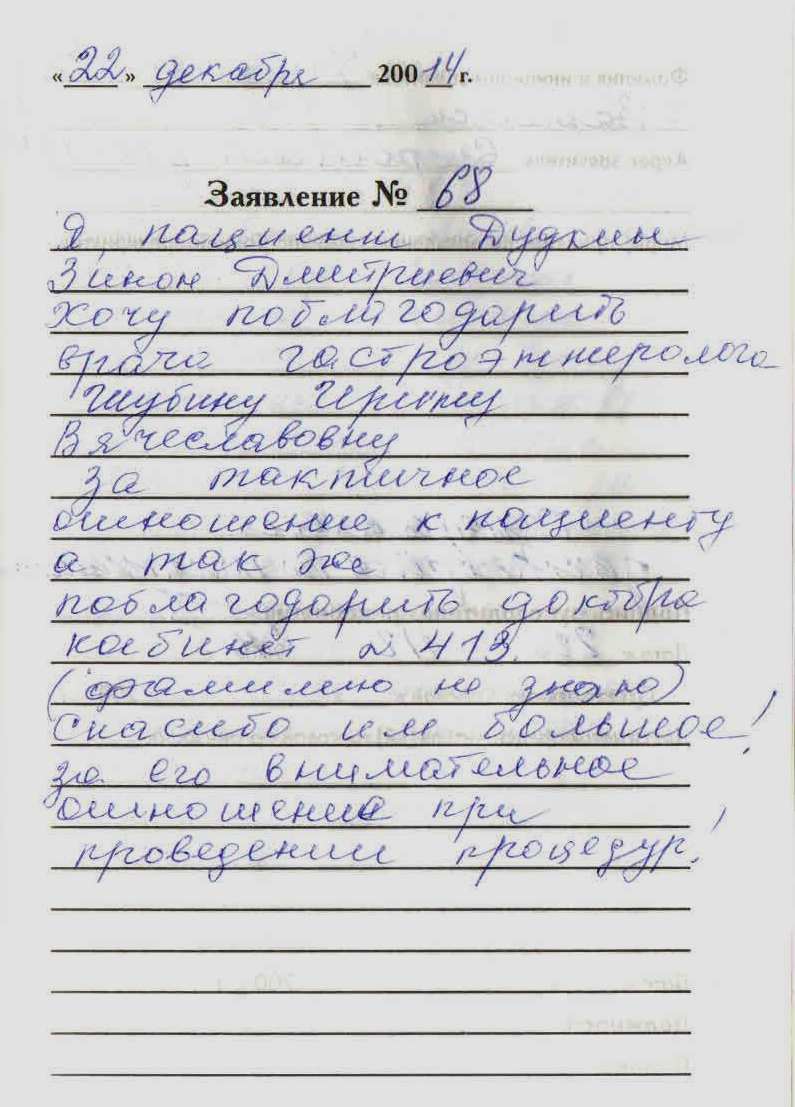 «22» декабря 20014 г.
Заявление № 68
Я, пациент Дудкин
Зинон Дмитриевич
хочу поблагодарить
врача гастроэнтеролога
Шубину Ирину
Вячеславовну
за тактичное
отношение к пациенту
а так же
поблагодарить доктора
кабинет № 413.
(фамилию не знаю)
Спасибо им большое!
за его внимательное
отношение при
проведении процедур!